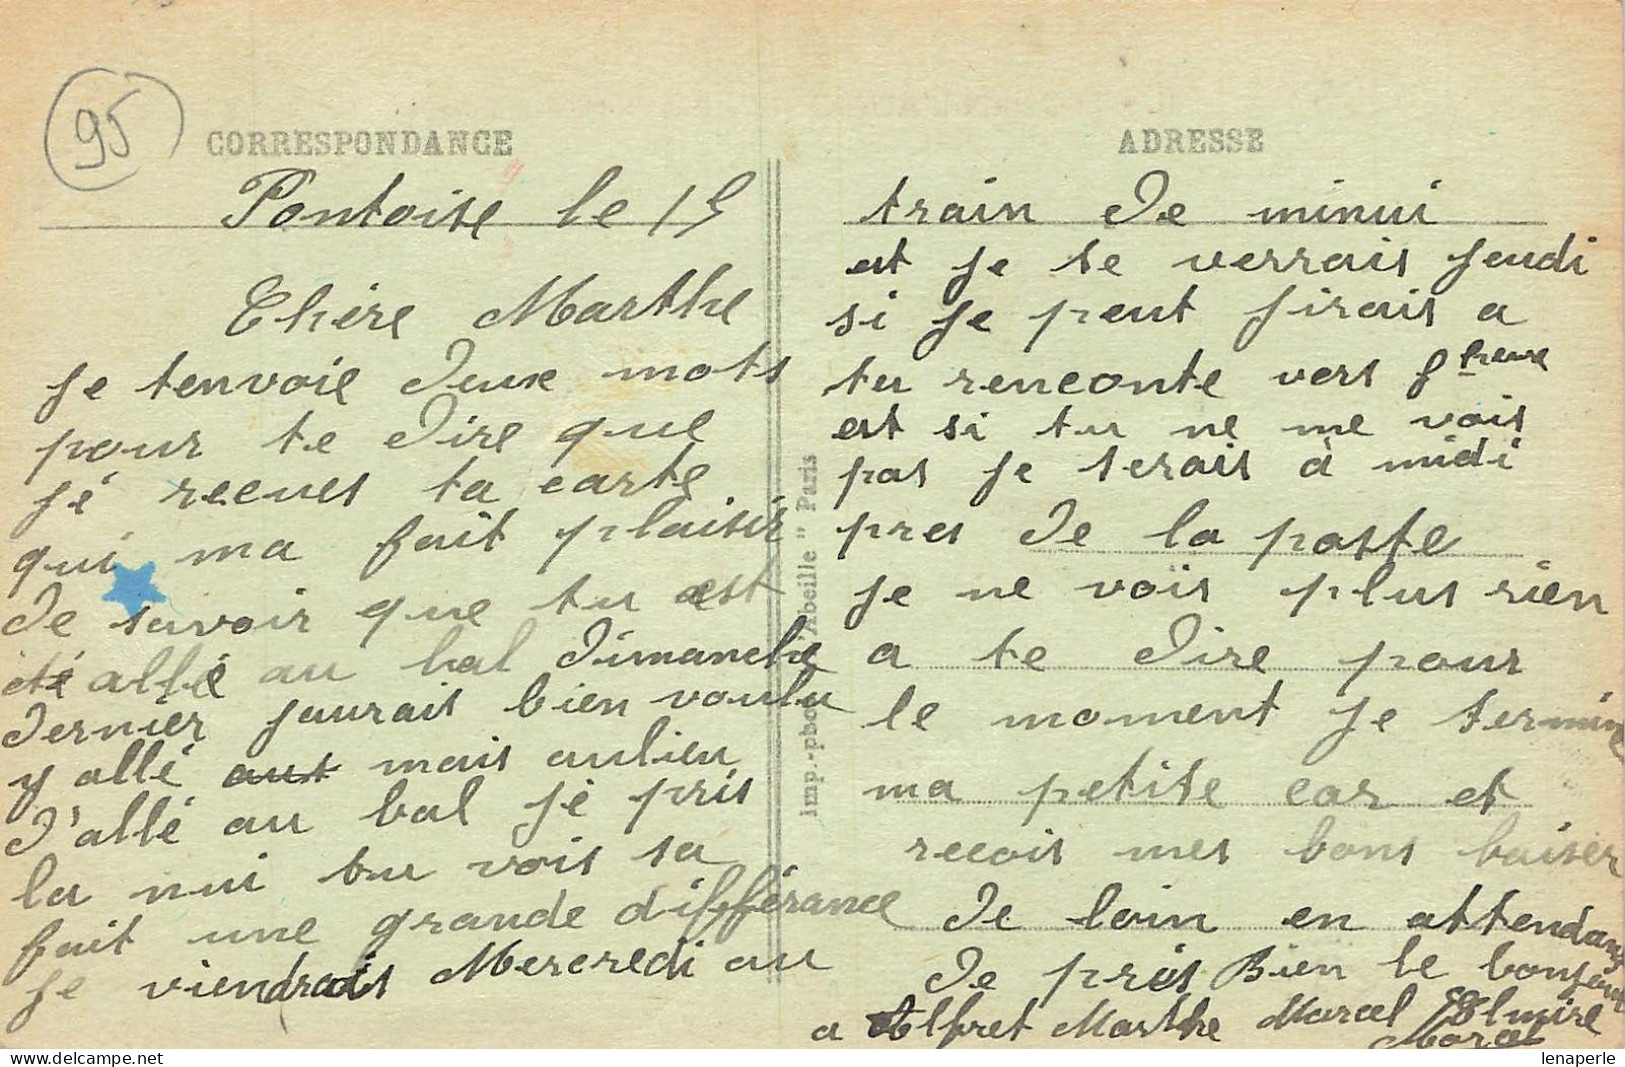 95
CORRESPONDANCE
Pontoise le 15
Chére Marthe
je tenvoie deux mots
pour te dire que
jé recues ta carte
qui ma fait plaisir
de savoir que tu est
été allé au bal dimanche
dernier jaurais bien voulu
y allé mais aulieu
d'allé au bal jé pris
la nui tu vois sa
fait une grande différance
je viendrais Mercredi au
imp.-phot. "Abeille" Paris
ADRESSE
train de minui
est je te verrais jeudi
si je peut jirais a
tu renconte vers heure
est si tu ne me vois
pas je serais à midi
pres de la poste
je ne vois plus rien
a te dire pour
le moment je termine
ma petite car et
recois mes bons baiser
de loin en attendant
de pris Bien le bonjour
a Alfret Marthe Marcel Elmire
Marcel
lenaperle